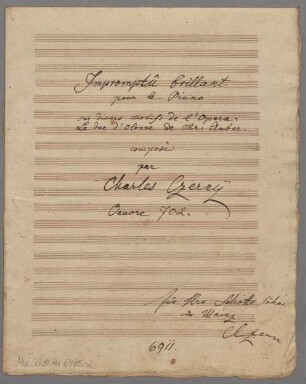 Impromptû brillant
pour le Piano
sur divers motifs de l'Opera
Le duc d'Olonne de Mr. Auber.
composé
par
Charles Czerny
Oeuvre 702.
Für Hrn Schotts Söhne
in Mainz
CCzerny
6911.